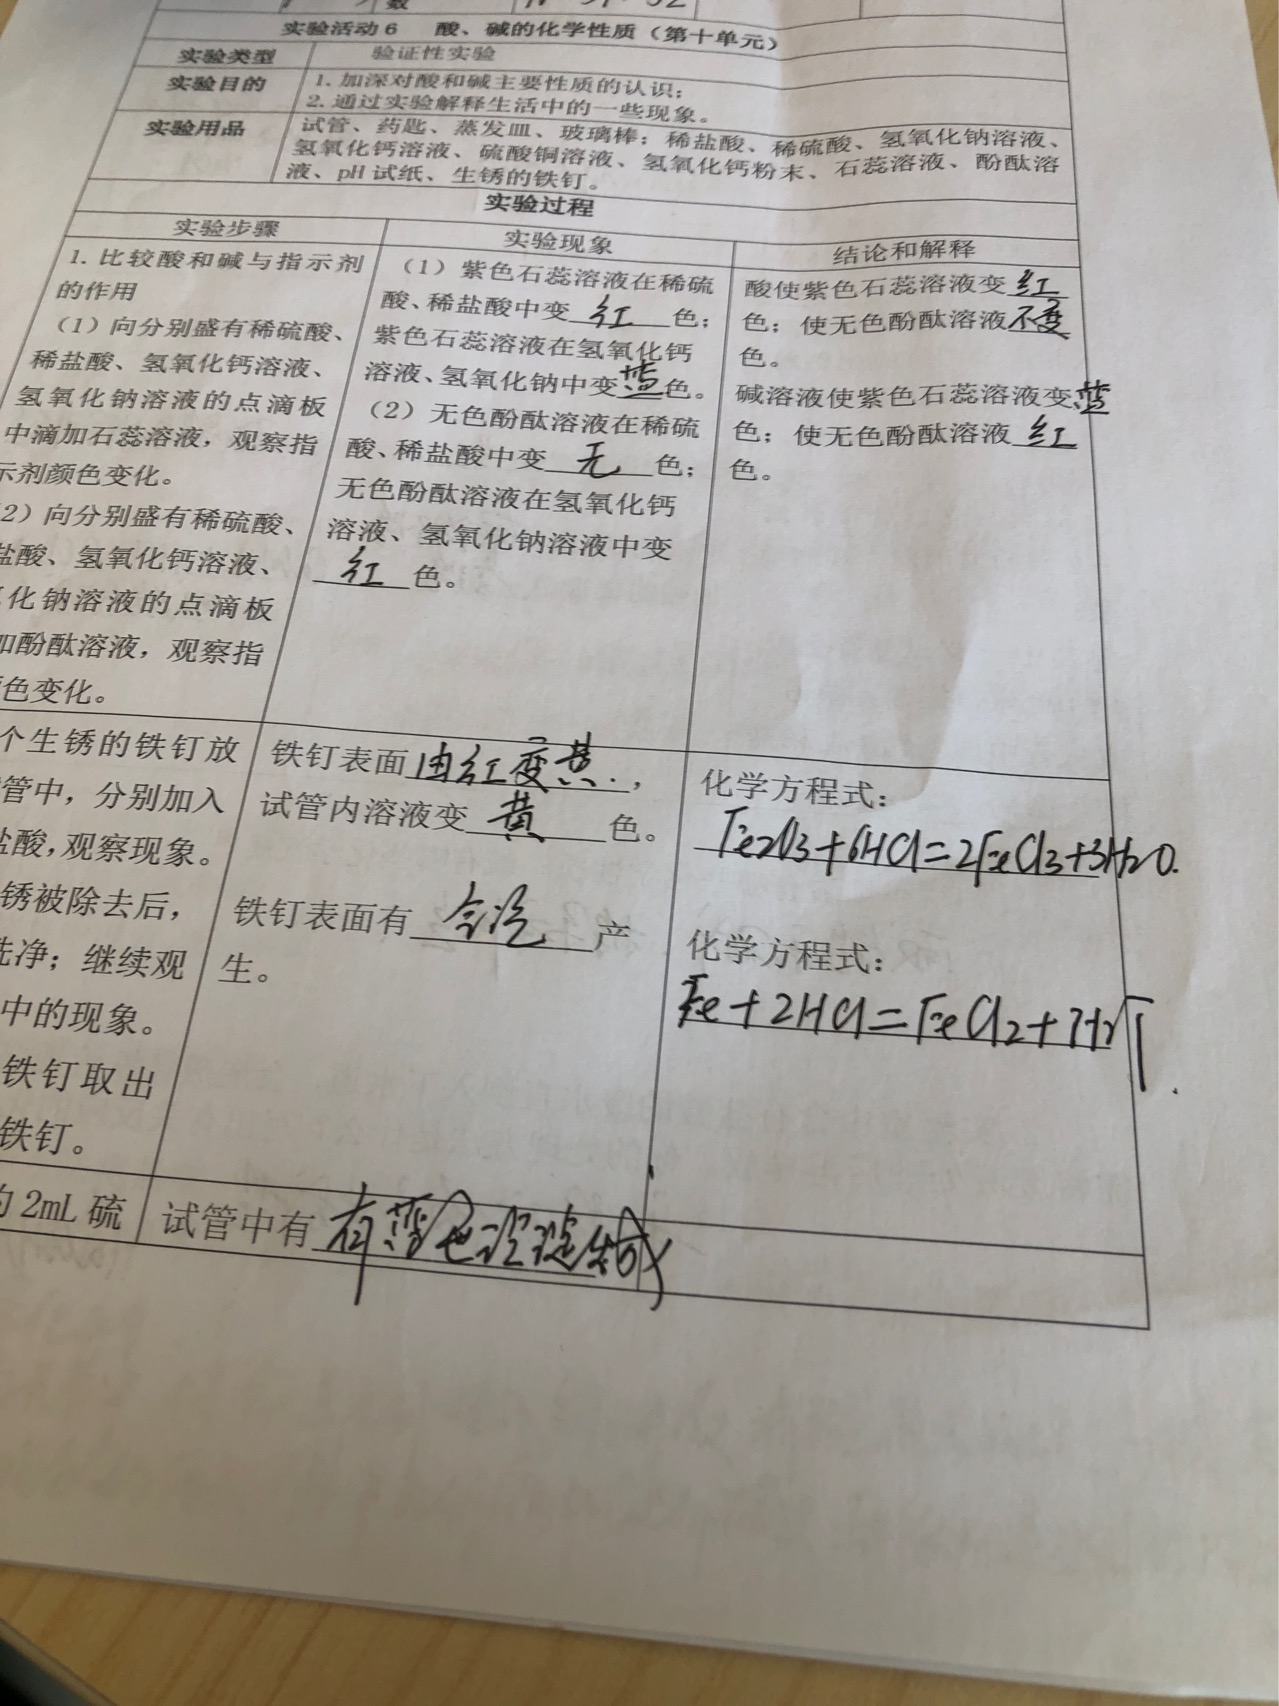 数
实验活动6 酸、碱的化学性质（第十单元）
实验类型 验证性实验
实验目的 1. 加深对酸和碱主要性质的认识；
2. 通过实验解释生活中的一些现象。
实验用品 试管、药匙、蒸发皿、玻璃棒；稀盐酸、稀硫酸、氢氧化钠溶液、
氢氧化钙溶液、硫酸铜溶液、氢氧化钙粉末、石蕊溶液、酚酞溶
液、pH 试纸、生锈的铁钉。
实验过程
实验步骤 实验现象 结论和解释
1. 比较酸和碱与指示剂
的作用
（1）向分别盛有稀硫酸、
稀盐酸、氢氧化钙溶液、
氢氧化钠溶液的点滴板
中滴加石蕊溶液，观察指
示剂颜色变化。
2）向分别盛有稀硫酸、
盐酸、氢氧化钙溶液、
化钠溶液的点滴板
加酚酞溶液，观察指
色变化。
（1）紫色石蕊溶液在稀硫
酸、稀盐酸中变 红 色；
紫色石蕊溶液在氢氧化钙
溶液、氢氧化钠中变蓝色。
（2）无色酚酞溶液在稀硫
酸、稀盐酸中变 无 色；
无色酚酞溶液在氢氧化钙
溶液、氢氧化钠溶液中变
红 色。
酸使紫色石蕊溶液变 红
色；使无色酚酞溶液不变
色。
碱溶液使紫色石蕊溶液变蓝
色；使无色酚酞溶液 红
色。
个生锈的铁钉放
管中，分别加入
盐酸，观察现象。
锈被除去后，
洗净；继续观
中的现象。
铁钉取出
铁钉。
铁钉表面由红变黄.，
试管内溶液变 黄 色。
铁钉表面有 气泡 产
生。
化学方程式：
Fe2O3+6HCl=2FeCl3+3H2O.
化学方程式：
Fe+2HCl=FeCl2+H2↑.
的 2mL 硫
试管中有 有蓝色沉淀生成